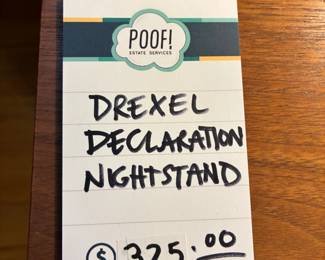 POOF!
ESTATE SERVICES
DREXEL
DECLARATION
NIGHTSTAND
$ 325.00